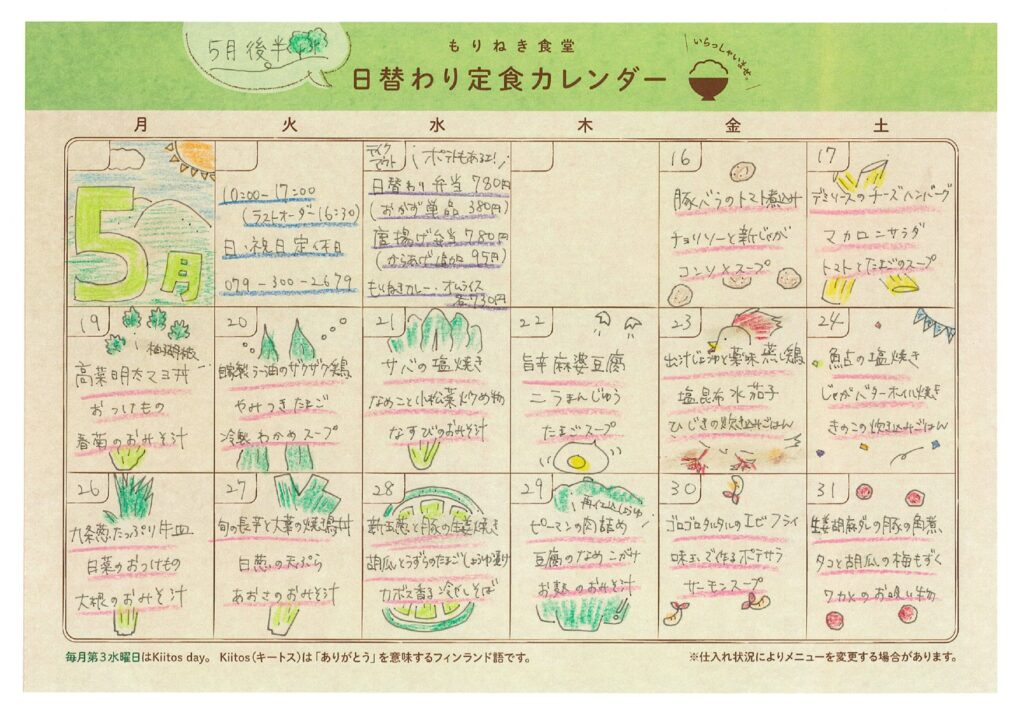 5月後半
もりねき食堂
日替わり定食カレンダー
いらっしゃいませ。
月 火 水 木 金 土
5月
10:00-17:00
(ラストオーダー16:30)
日・祝日定休日
079-300-2679
テイクアウト
ポテトもあるヨ!
日替わり弁当 780円
(おかず単品 380円)
唐揚げ弁当 780円
(からあげ1個 95円)
もりねきカレー・オムライス
各730円
16
豚バラのトマト煮込み
チョリソーと新じゃが
コンソメスープ
17
デミソースのチーズハンバーグ
マカロニサラダ
トマトとたまごのスープ
19
柚子胡椒
高菜明太マヨ丼
おつけもの
春菊のおみそ汁
20
自家製ラー油のザクザク鶏
やみつきたまご
冷製わかめスープ
21
サバの塩焼き
なめこと小松菜炒め物
なすびのおみそ汁
22
旨辛麻婆豆腐
ニラまんじゅう
たまごスープ
23
出汁じょうゆと薬味蒸し鶏
塩昆布水茄子
ひじきの炊き込みごはん
24
魚の塩焼き
じゃがバターホイル焼き
きのこの炊き込みごはん
26
九条葱たっぷり牛皿
白菜のおつけもの
大根のおみそ汁
27
旬の長芋と大葉の焼き鶏丼
白葱の天ぷら
あおさのおみそ汁
28
新玉葱と豚の生姜焼き
胡瓜とうずらのたまごしょうゆ漬け
カボス香る冷やしそば
29
ピーマンの肉詰め
豆腐のなめこがみ
お麩のおみそ汁
30
ゴロゴロタルタルのエビフライ
味玉で作るポテサラ
サーモンスープ
31
生姜胡麻ダレの豚の角煮
タコと胡瓜の梅もずく
ワカメのお吸い物
毎月第3水曜日はKiitos day。 Kiitos(キートス)は「ありがとう」を意味するフィンランド語です。
※仕入れ状況によりメニューを変更する場合があります。